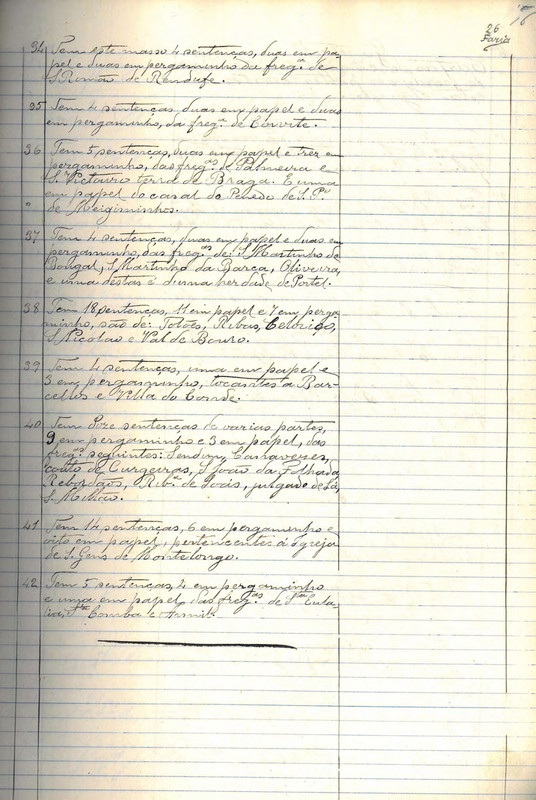 26
Faria
34 Tem este masso 4 sentenças, duas em pa-
pel e duas em pergaminho da freg.ª de
S. Romão de Rendufe.
35 Tem 4 sentenças duas em papel e duas
em pergaminho, da freg.ª de Corvite.
36 Tem 5 sentenças, duas em papel e trez em
pergaminho, das freg.as de Palmeira e
S. Victauro terra de Braga. E uma
em papel do casal do Penedo de S. P.º
de Meigiminhos.
37 Tem 4 sentenças, duas em papel e duas em
pergaminho, das freg.as de: S. Martinho de
Bougal, S. Martinho da Barca, Oliveira,
e uma destas é d'uma herdade de Portel.
38 Tem 18 sentenças, 11 em papel e 7 em perga
minho, são de: Tolões, Ribas,
S. Nicolao e Val de Bouro.
39 Tem 4 sentenças, uma em papel e
3 em pergaminho, tocantes a Bar-
cellos e Villa do Conde.
40 Tem doze sentenças de varias partes,
9 em pergaminho e 3 em papel, das
freg.as seguintes: Sendim, Canavezes,
couto de Curgeiras, S. João da Folhada,
Rebordãos, Rib.ª de julgado de
S.
41 Tem 14 sentenças, 6 em pergaminho e
oito em papel, pertencentes á Igreja
de S. Gens de Montelongo.
42 Tem 5 sentenças, 4 em pergaminho
e uma em papel das freg.as de S.ta Eula
lia, S.ta Comba e Armil.